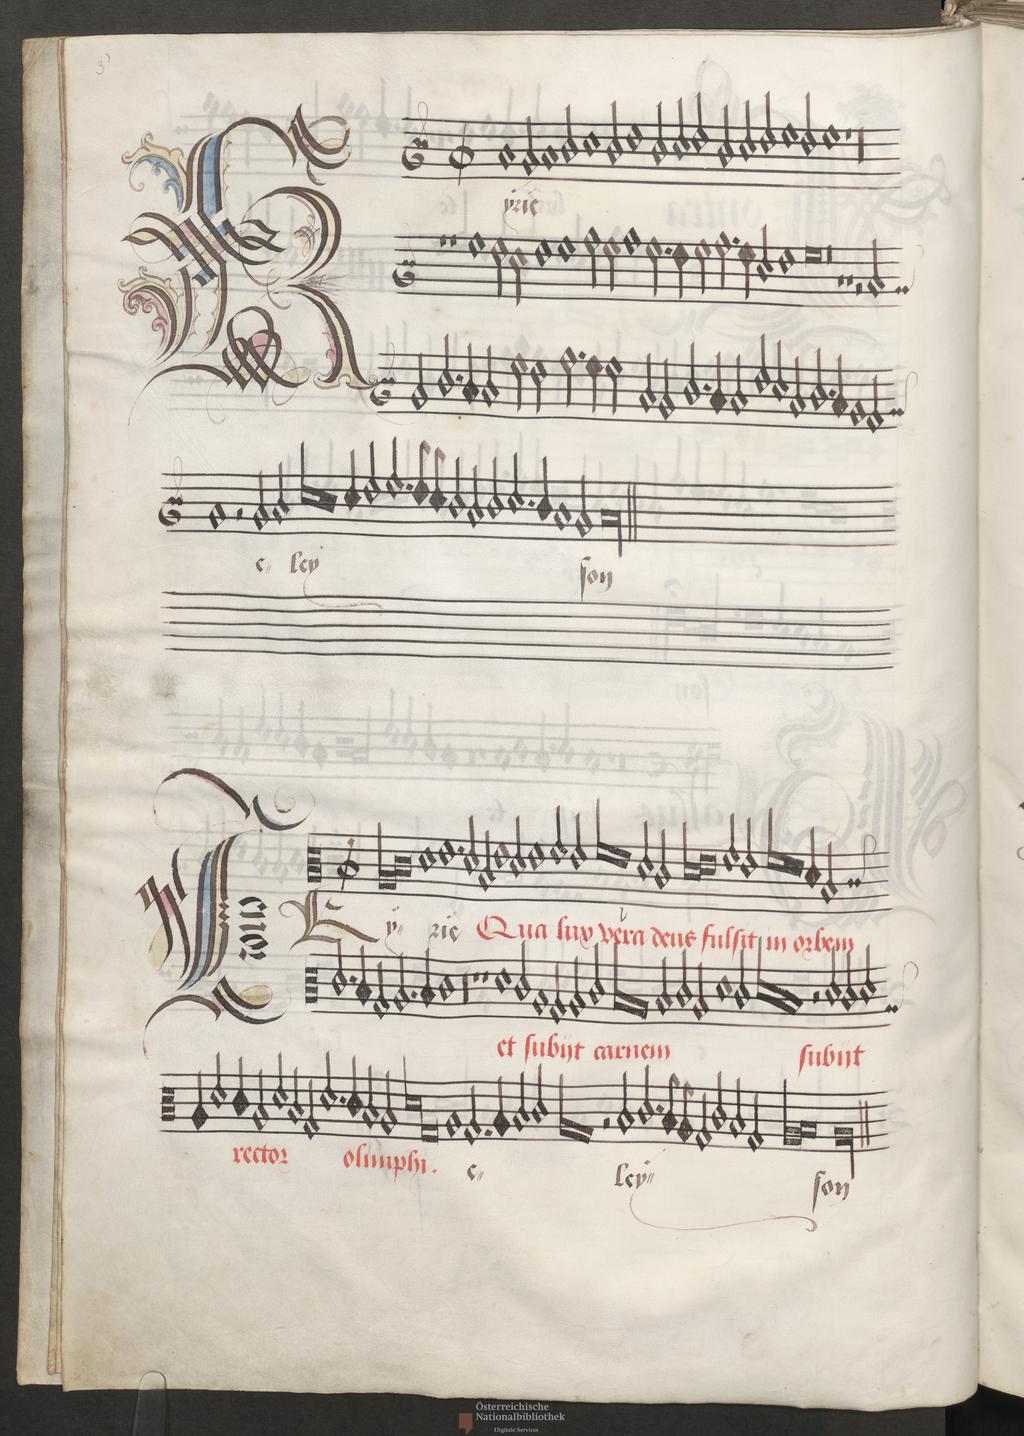 3
Kyrie
e ley son
Tenor
Kyrie Qua lux vera deus fulsit in orbem
et subijt carnem subijt
rector olimphi. e ley son
Österreichische
Nationalbibliothek
Digitale Services